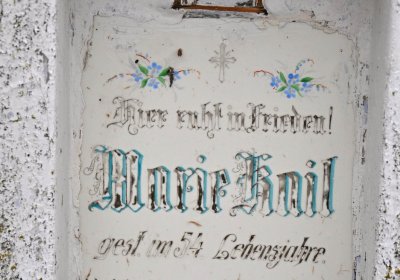 Hier ruht in Frieden!
Marie Knil
gest. im 54. Lebensjahre